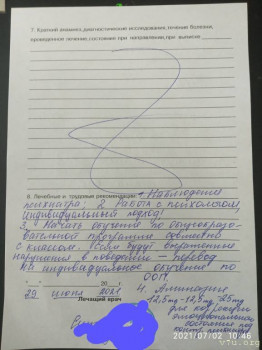 7. Краткий анамнез, диагностические исследования, течение болезни,
проведенное лечение, состояние при направлении, при выписке
8. Лечебные и трудовые рекомендации 1. Наблюдение
психиатра; 2. Работа с психологом,
индивидуальный подход!
3. Начать обучение по общеобразо-
вательной программе совместно
с классом. Если будут выраженные
нарушения в поведении – перевод
на индивидуальное обучение по
ООП.
29 июня 2021 4.
Лечащий врач 12,5mg-12,5mg-25mg
для коррекции
эмоционального
состояния под
2021/07/02 10:46